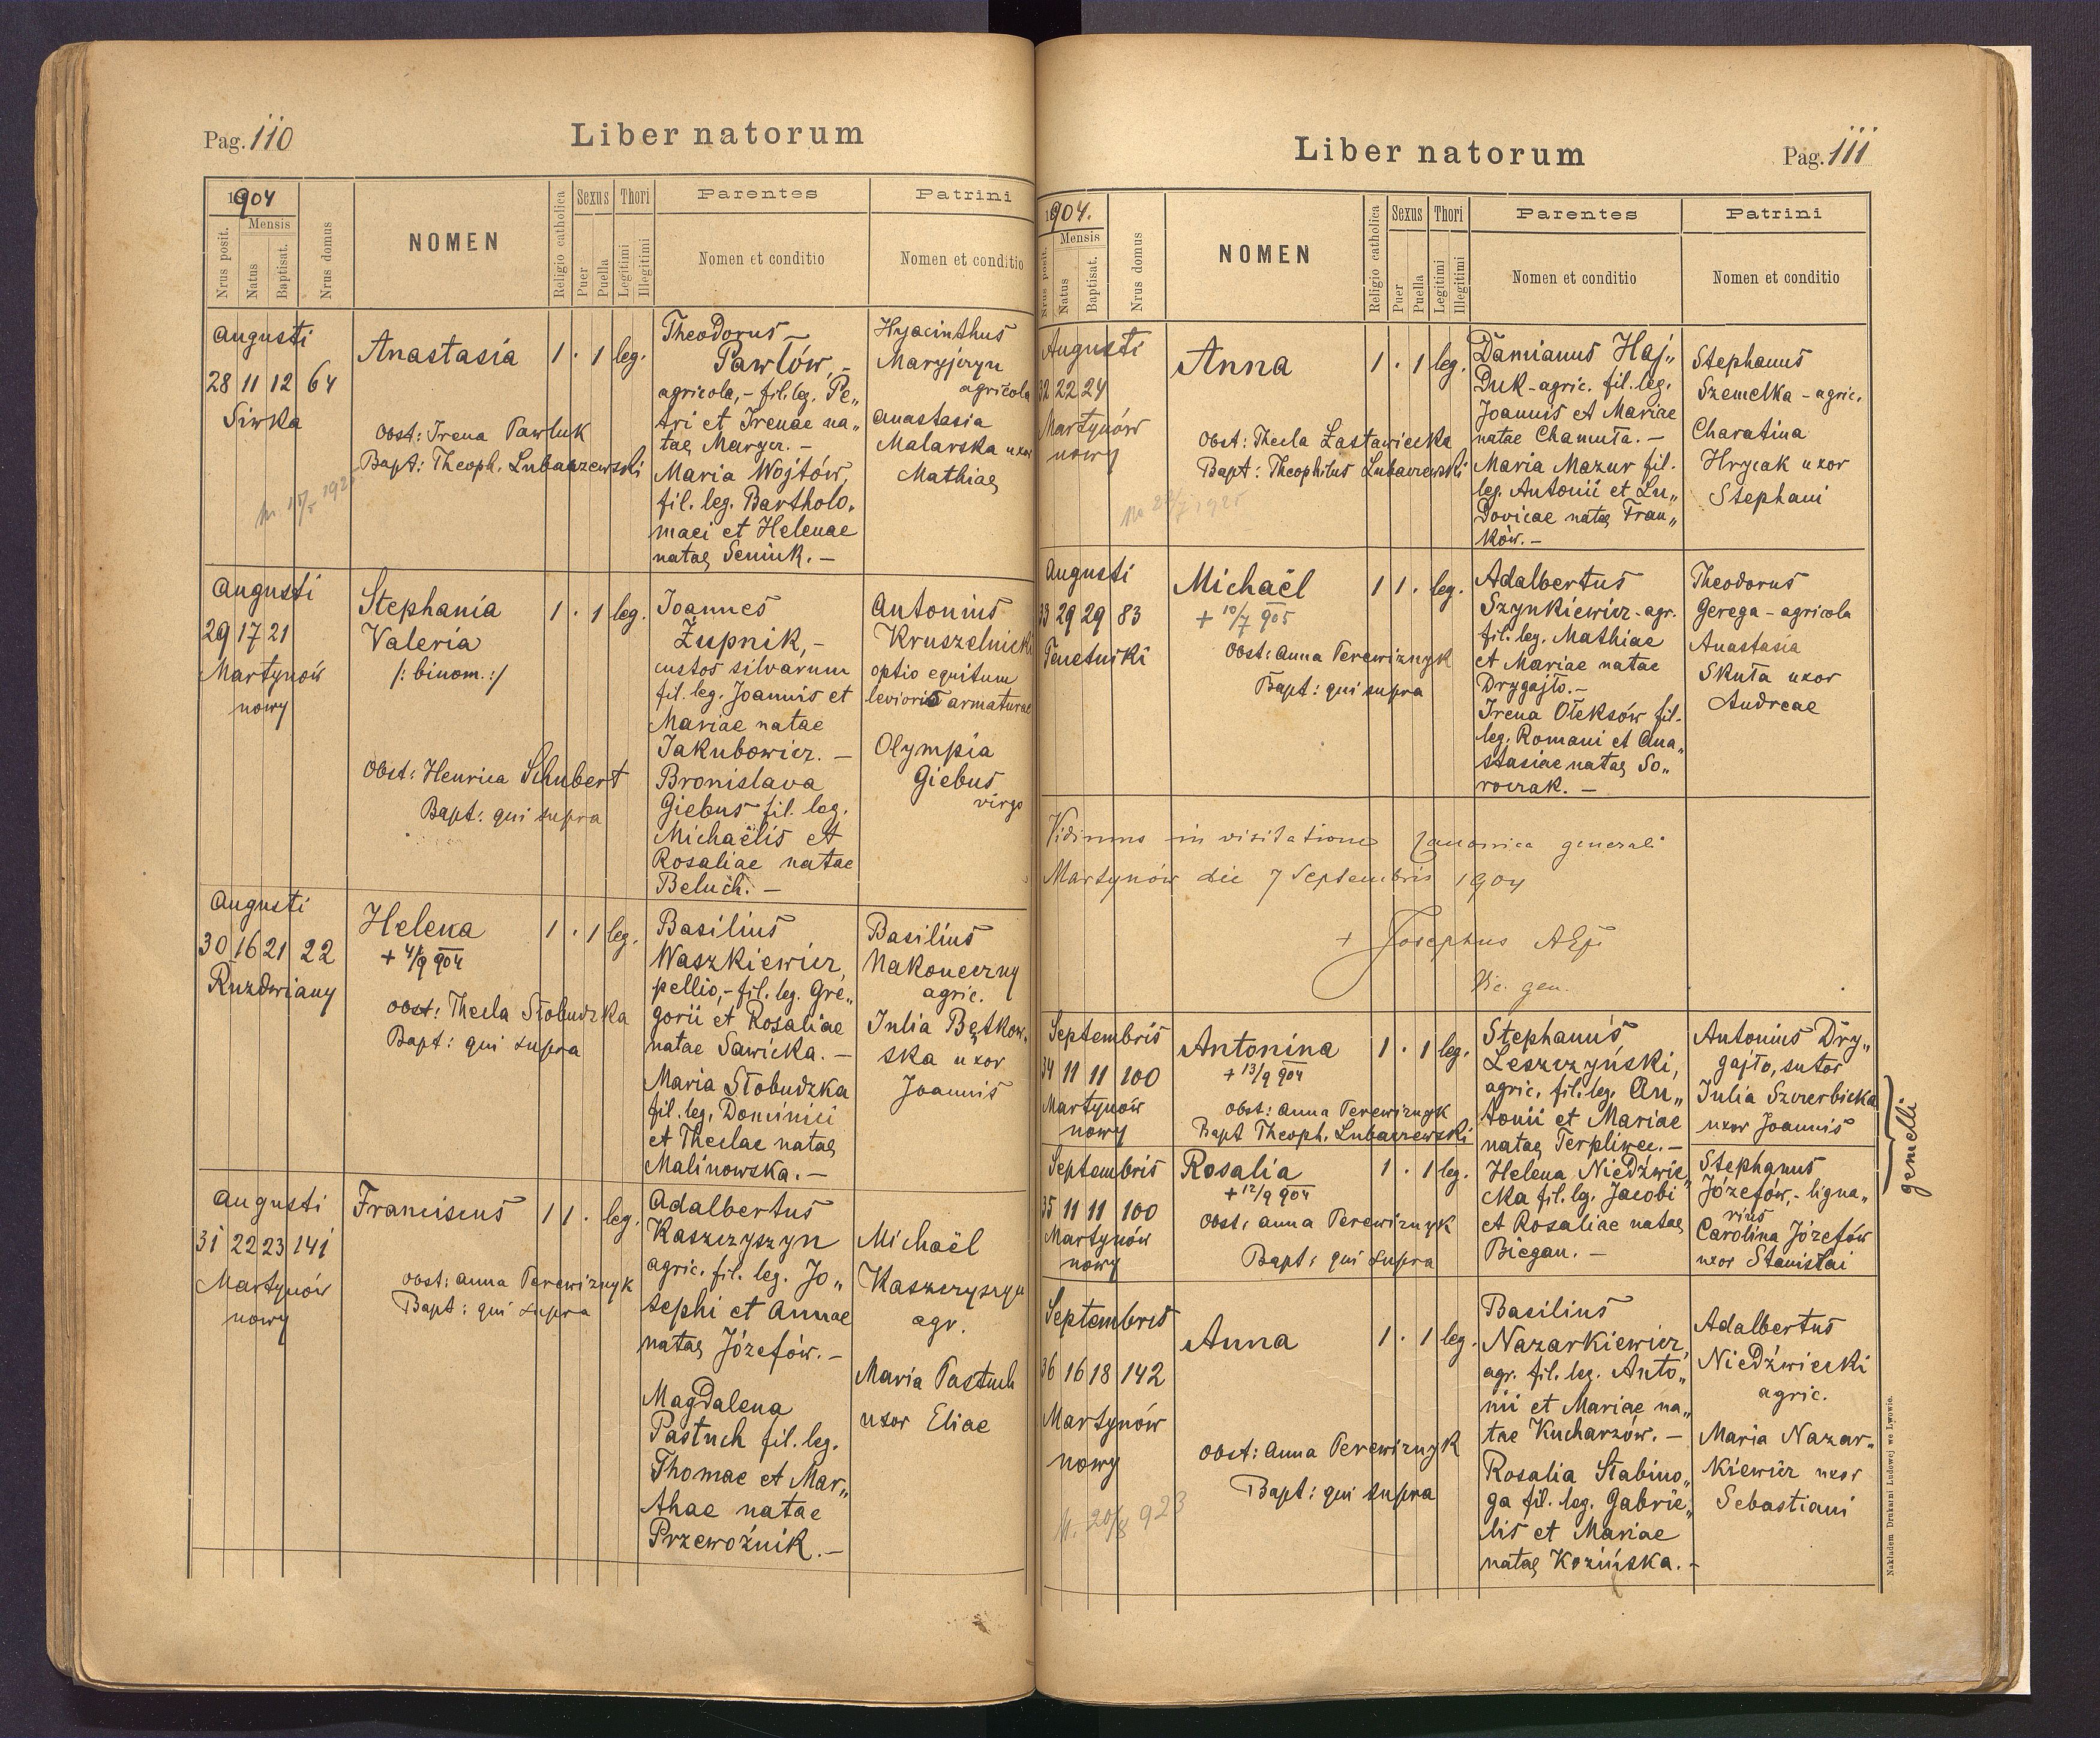 Pag. 110
Liber natorum
1904
Mensis
Nrus posit.
Natus
Baptisat.
Nrus domus
NOMEN
Religio catholica
Sexus
Puer
Puella
Thori
Legitimi
Illegitimi
Parentes
Nomen et conditio
Patrini
Nomen et conditio
Augusti
28 11 12 64
Siwka
Anastasia
1 . 1 leg.
Obst: Irena Pawluk
Bapt: Theoph. Lubaczewski
Theodorus
Pawłów, -
agricola, - fil. leg. Pe„
tri et Irenae na„
tae Maryer. -
Maria Wojtów,
fil. leg. Bartholo„
maei et Helenae
natae Seniuk. -
Hyacinthus
Maryjczyn
agricola
Anastasia
Malarska uxor
Mathiae
Augusti
29 17 21
Martynów
nowy
Stephania
Valeria
/: binom. :/
1 . 1 leg.
Obst: Henrica Schubert
Bapt: qui supra
Joannes
Żupnik, -
custos silvarum
fil. leg. Joannis et
Mariae natae
Jakubowicz. -
Bronislava
Giebus fil. leg.
Michaëlis et
Rosaliae natae
Beluch. -
Antonius
Kruszelnicki
optio equitum
levioris armaturae
Olympia
Giebus
virgo
Augusti
30 16 21 22
Ruzdwiany
Helena
+ 4/9 904
1 . 1 leg.
Obst: Thecla Słobudzka
Bapt: qui supra
Basilius
Waszkiewicz,
pellio, - fil. leg. Gre„
gorii et Rosaliae
natae Sawicka. -
Maria Słobudzka
fil. leg. Dominici
et Theclae natae
Malinowska. -
Basilius
Nakoneczny
agric.
Julia Bętkow„
ska uxor
Joannis
Augusti
31 22 23 141
Martynów
nowy
Franciscus
1 1 . leg.
Obst: Anna Perewiznyk
Bapt: qui supra
Adalbertus
Kaszczyszyn
agric. fil. leg. Jo„
sephi et Annae
natae Józefów. -
Magdalena
Pastuch fil. leg.
Thomae et Mar„
thae natae
Przewoźnik. -
Michaël
Kaszczyszyn
agr.
Maria Pastuch
uxor Eliae
Liber natorum
Pag. 111
1904.
Mensis
Nrus posit.
Natus
Baptisat.
Nrus domus
NOMEN
Religio catholica
Sexus
Puer
Puella
Thori
Legitimi
Illegitimi
Parentes
Nomen et conditio
Patrini
Nomen et conditio
Augusti
32 22 24
Martynów
nowy
Anna
1 . 1 leg.
Obst: Thecla Zastawiecka
Bapt: Theophilus Lubaczewski
Damianus Haj„
duk - agric. fil. leg.
Joannis et Mariae
natae Chamuła. -
Maria Mazur fil.
leg. Antonii et Lu„
dovicae natae Fran„
ków. -
Stephanus
Szemełka - agric.
Charatina
Hrycak uxor
Stephani
Augusti
33 29 29 83
Tenetniki
Michaël
+ 10/7 905
1 1 . leg.
Obst: Anna Perewiznyk
Bapt: qui supra
Adalbertus
Szynkiewicz - agr.
fil. leg. Mathiae
et Mariae natae
Drygajło. -
Irena Ołeksów fil.
leg. Romani et Ana„
stasiae natae So„
roczak. -
Theodorus
Gerega - agricola
Anastasia
Skuła uxor
Andreae
Vidimus in visitatione canonica generali
Martynów die 7 Septembris 1904
+ Josephus AEp
Vic. gen.
Septembris
34 11 11 100
Martynów
nowy
Antonina
+ 13/9 904
1 . 1 leg.
Obst: Anna Perewiznyk
Bapt Theoph. Lubaczewski
Stephanus
Leszczyński,
agric. fil. leg. An„
tonii et Mariae
natae Terpliwec. -
Antonius Dry„
gajło, sutor
Julia Szczerbicka
uxor Joannis
gemelli
Septembris
35 11 11 100
Martynów
nowy
Rosalia
+ 12/9 904
1 . 1 leg.
Obst: Anna Perewiznyk
Bapt: qui supra
Helena Niedźwie„
cka fil. leg. Jacobi
et Rosaliae natae
Biegan. -
Stephanus
Józefów, - ligna„
rius
Carolina Józefów
uxor Stanislai
Septembris
36 16 18 142
Martynów
nowy
M. 20/8 923
Anna
1 . 1 leg.
Obst: Anna Perewiznyk
Bapt: qui supra
Basilius
Nazarkiewicz,
agr. fil. leg. Anto„
nii et Mariae na„
tae Kucharzów. -
Rosalia Stabino„
ga fil. leg. Gabrie„
lis et Mariae
natae Kozińska. -
Adalbertus
Niedźwiecki
agric.
Maria Nazar„
kiewicz uxor
Sebastiani
Nakładem Drukarni Ludowej we Lwowie.